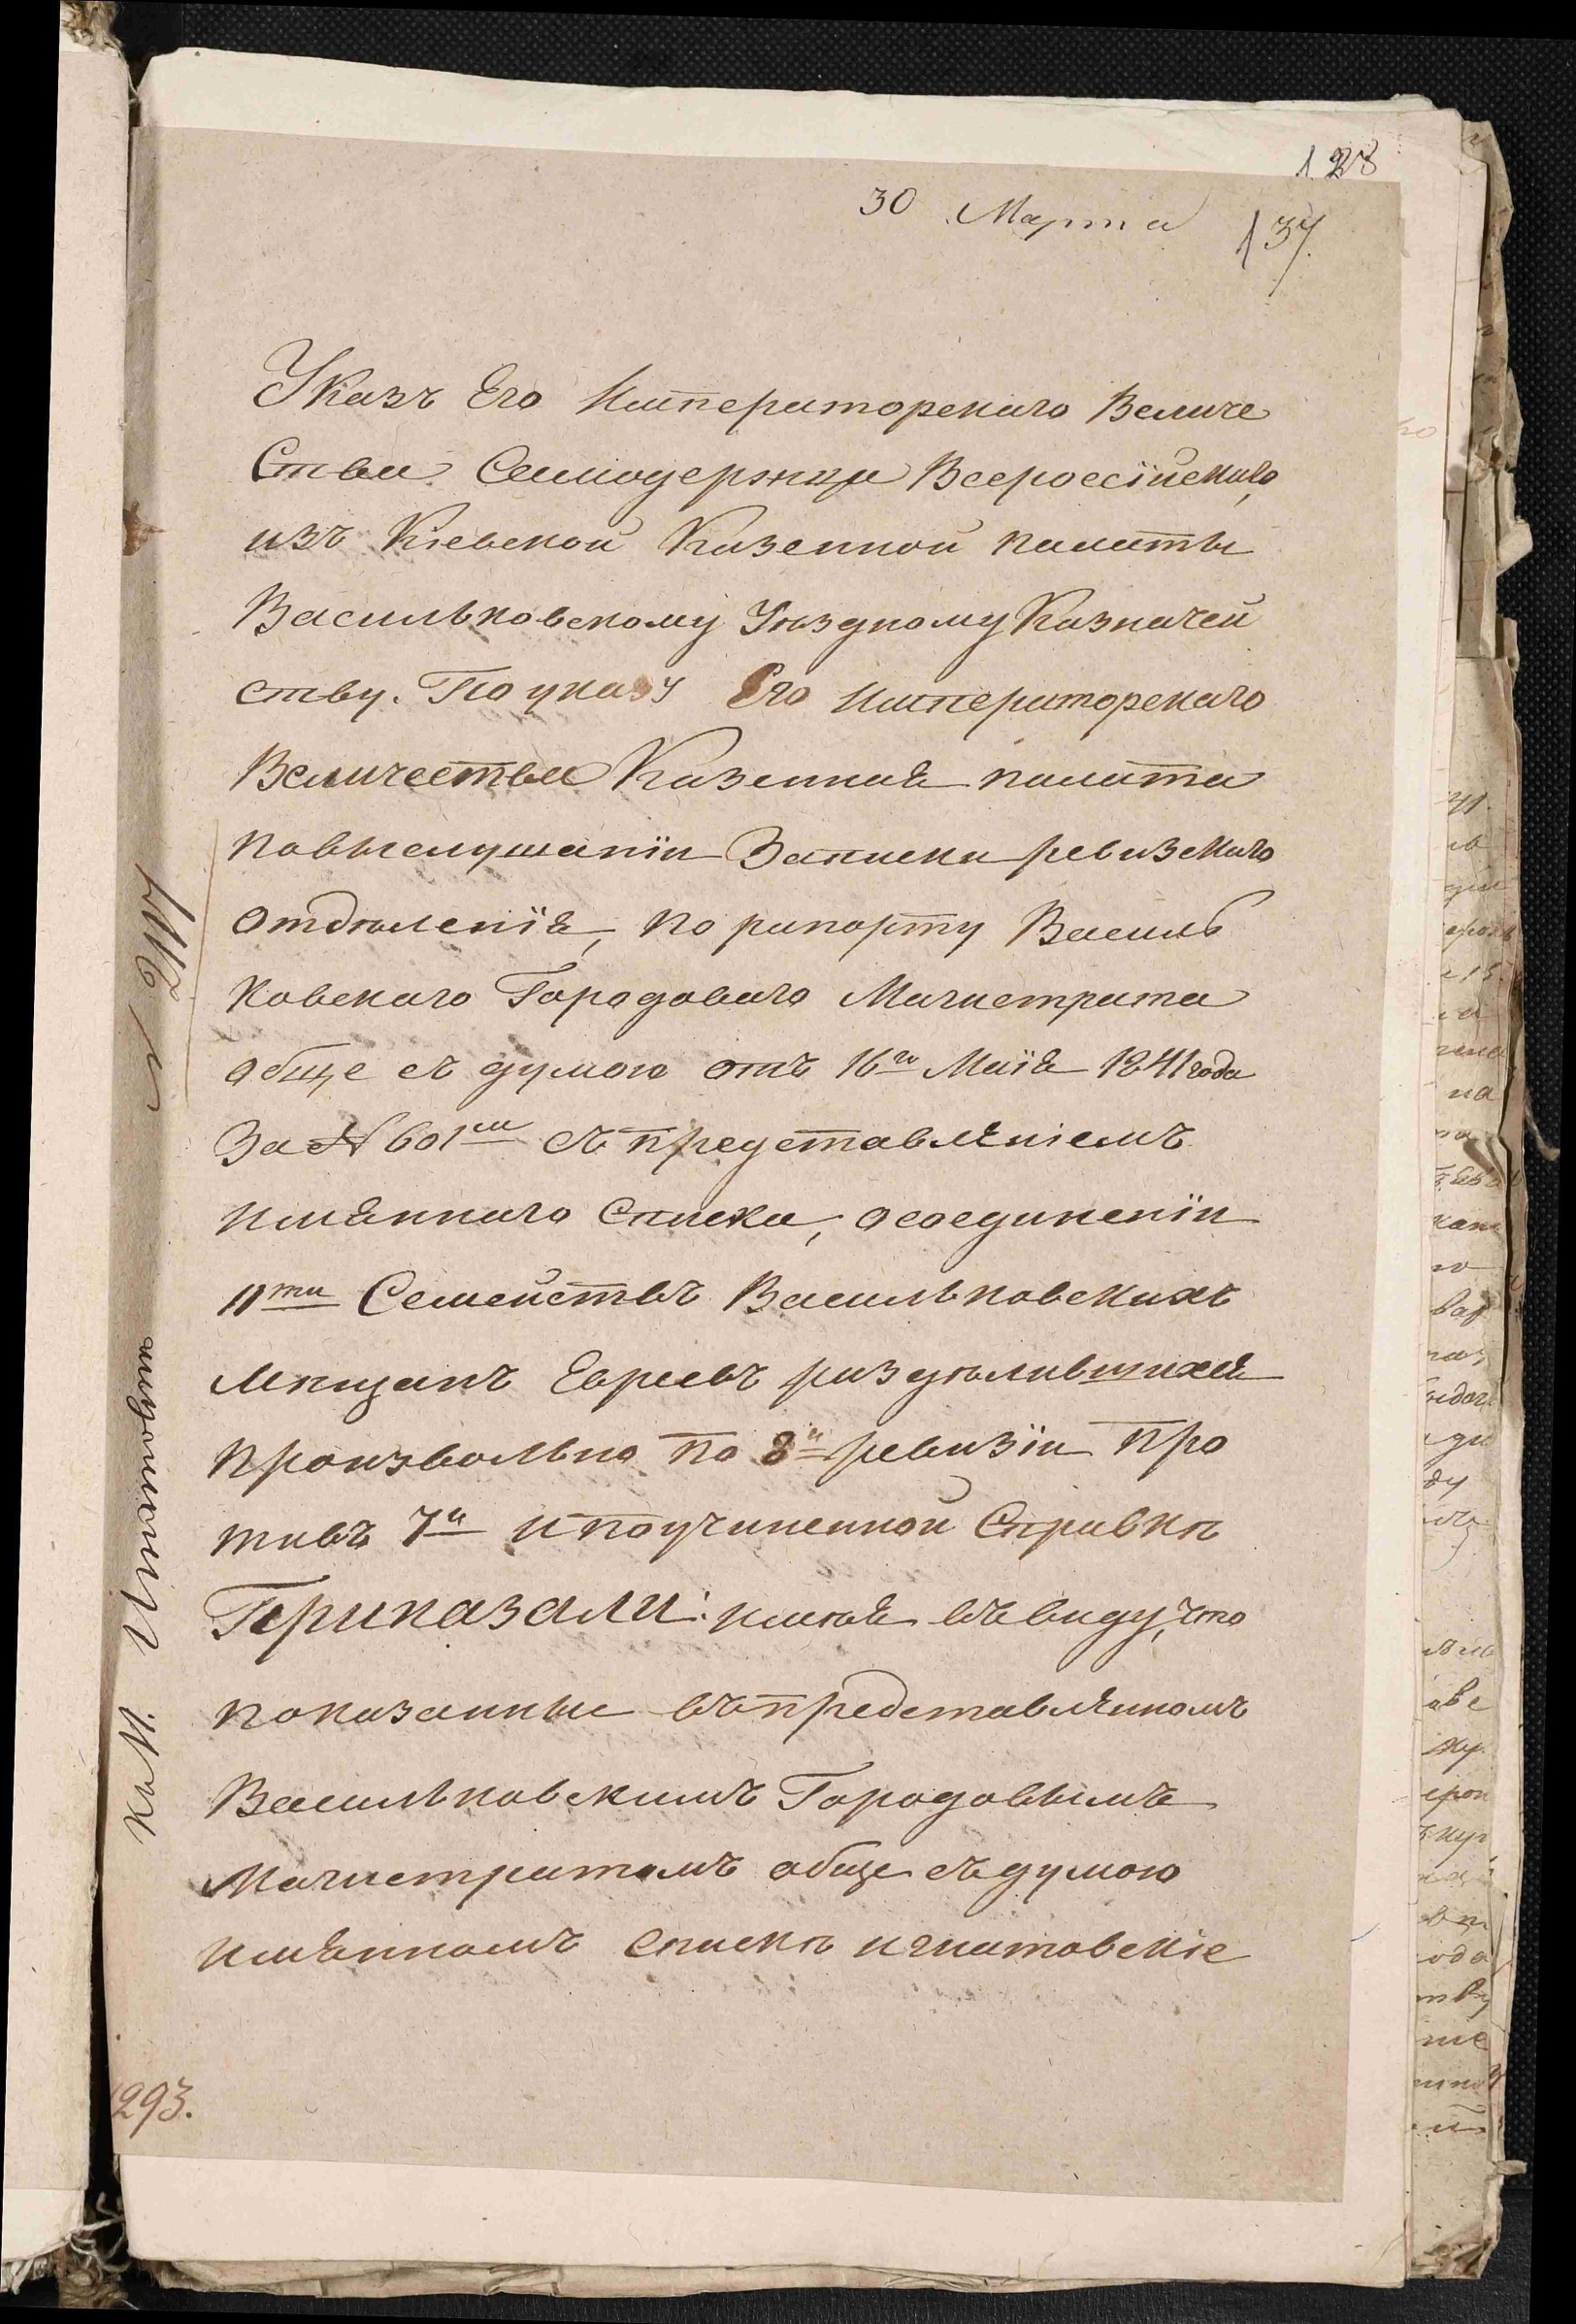 128
30 Марта 137.
Указъ Его Императорскаго Величе
Ства Самодержца Всероссійскаго,
изъ Кіевской Казенной палаты
Васильковскому Уѣздному Казначей
ству. По указу Его Императорскаго
Величества Казенная палата
повыслушаніи Записки ревизскаго
отдѣленія, по рапорту Василь
Ковскаго Городоваго Магистрата
обще съ думою отъ 16го Маія 1841 года
За № 601мъ съ представленіемъ
имяннаго Списка, осоединеніи
11ти Семействъ Васильковскихъ
мѣщанъ Евреевъ раздѣлившихся
произвольно по 8й ревизіи про
тивъ 7й и поучиненной Справкѣ
Приказали: имѣя въ виду, что
показанные въ представленномъ
Васильковскимъ Городовымъ
Магистратомъ обще съ думою
имянномъ спискѣ игнатовскіе
къ М. Игнатовка
293.